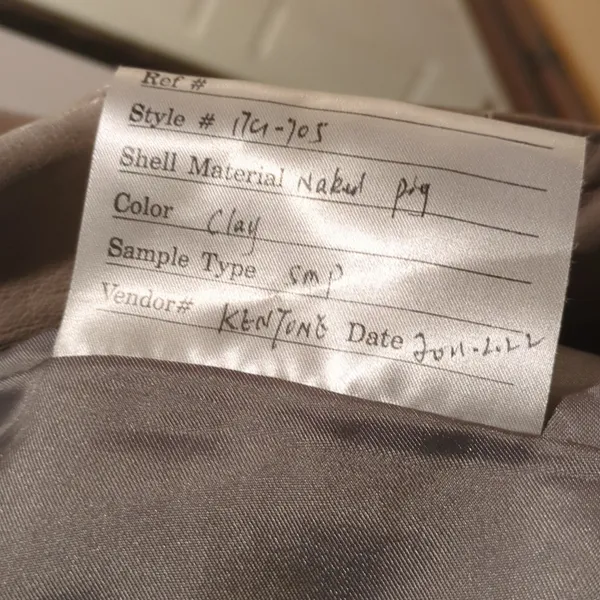 Ref #
Style # 17C1-705
Shell Material Naked pig
Color Clay
Sample Type smp
Vendor# KENTONE Date